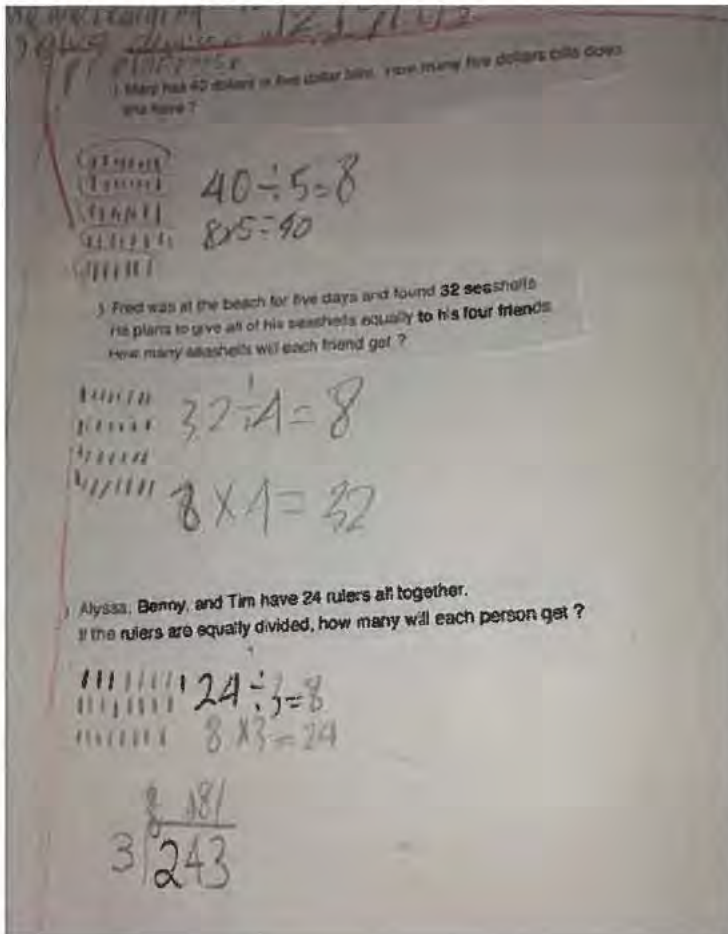 we are learning
1 Mary has 40 dollars in five dollar bills. How many five dollars bills does
she have ?
40÷5=8
8x5=40
5 Fred was at the beach for five days and found 32 seashells
He plans to give all of his seashells equally to his four friends
How many seashells will each friend get ?
32÷4=8
8x4=32
Alyssa, Benny, and Tim have 24 rulers all together.
If the rulers are equally divided, how many will each person get ?
24÷3=8
8x3=24
8 181
3 243